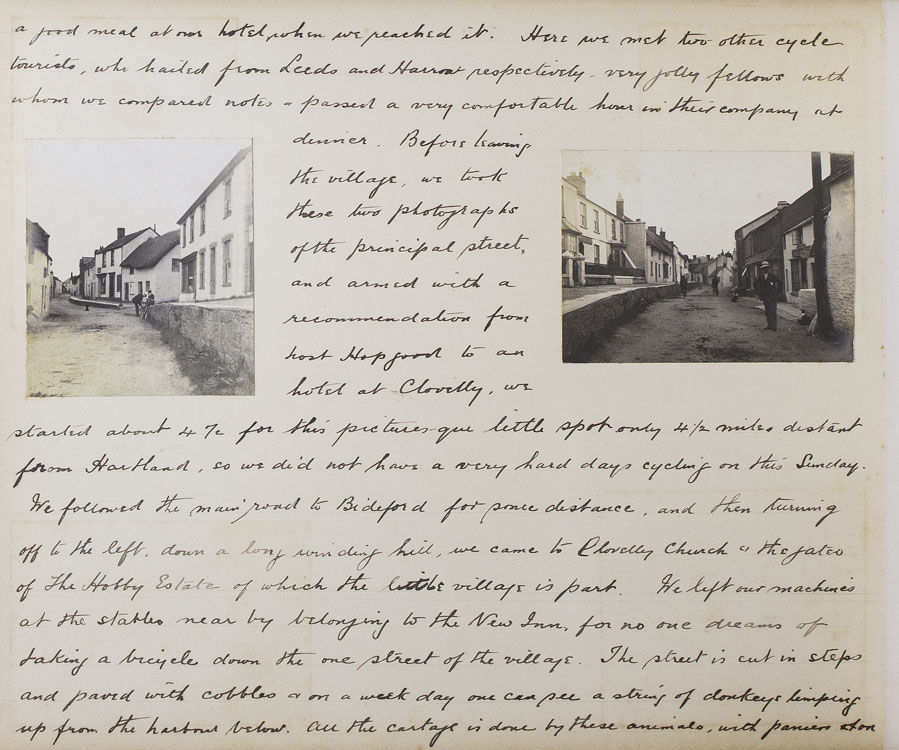 a good meal at our hotel, when we reached it. Here we met two other cycle
tourists, who hailed from Leeds and Harrow respectively - very jolly fellows with
whom we compared notes & passed a very comfortable hour in their company at
dinner. Before leaving
the village, we took
these two photographs
of the principal street,
and armed with a
recommendation from
host Hopgood to an
hotel at Clovelly, we
started about 4 for this pictures-que little spot only 4 1/2 miles distant
from Hartland, so we did not have a very hard days cycling on this Sunday.
We followed the main road to Bideford for some distance, and then turning
off to the left, down a long winding hill, we came to Clovelly Church & the gates
of The Hobby Estate of which the little village is part. We left our machines
at the stables near by belonging to the New Inn, for no one dreams of
taking a bicycle down the one street of the village. The street is cut in steps
and paved with cobbles & on a week day one can see a string of donkeys limping
up from the harbour below. All the cartage is done by these animals, with paniers on